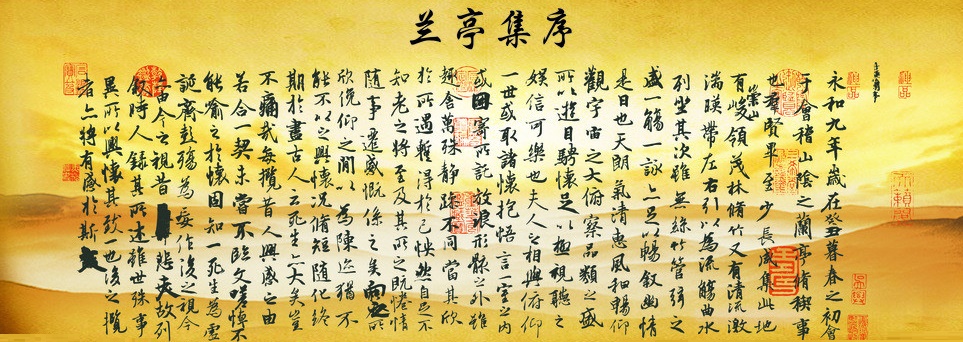 兰亭集序
永和九年歲在癸丑暮春之初會
于會稽山陰之蘭亭脩稧事
也羣賢畢至少長咸集此地
有崇山峻領茂林脩竹又有清流激
湍暎帶左右引以為流觴曲水
列坐其次雖無絲竹管弦之
盛一觴一詠亦足以暢敘幽情
是日也天朗氣清惠風和暢仰
觀宇宙之大俯察品類之盛
所以遊目騁懷足以極視聽之
娛信可樂也夫人之相與俯仰
一世或取諸懷抱悟言一室之內
或因寄所託放浪形骸之外雖
趣舍萬殊靜躁不同當其欣
於所遇暫得於己怏然自足不
知老之將至及其所之既惓情
隨事遷感慨係之矣向之所
欣俛仰之間以為陳迹猶不
能不以之興懷況脩短隨化終
期於盡古人云死生亦大矣豈
不痛哉每攬昔人興感之由
若合一契未嘗不臨文嗟悼不
能喻之於懷固知一死生為虛
誕齊彭殤為妄作後之視今
亦由今之視昔悲夫故列
敘時人錄其所述雖世殊事
異所以興懷其致一也後之攬
者亦將有感於斯文